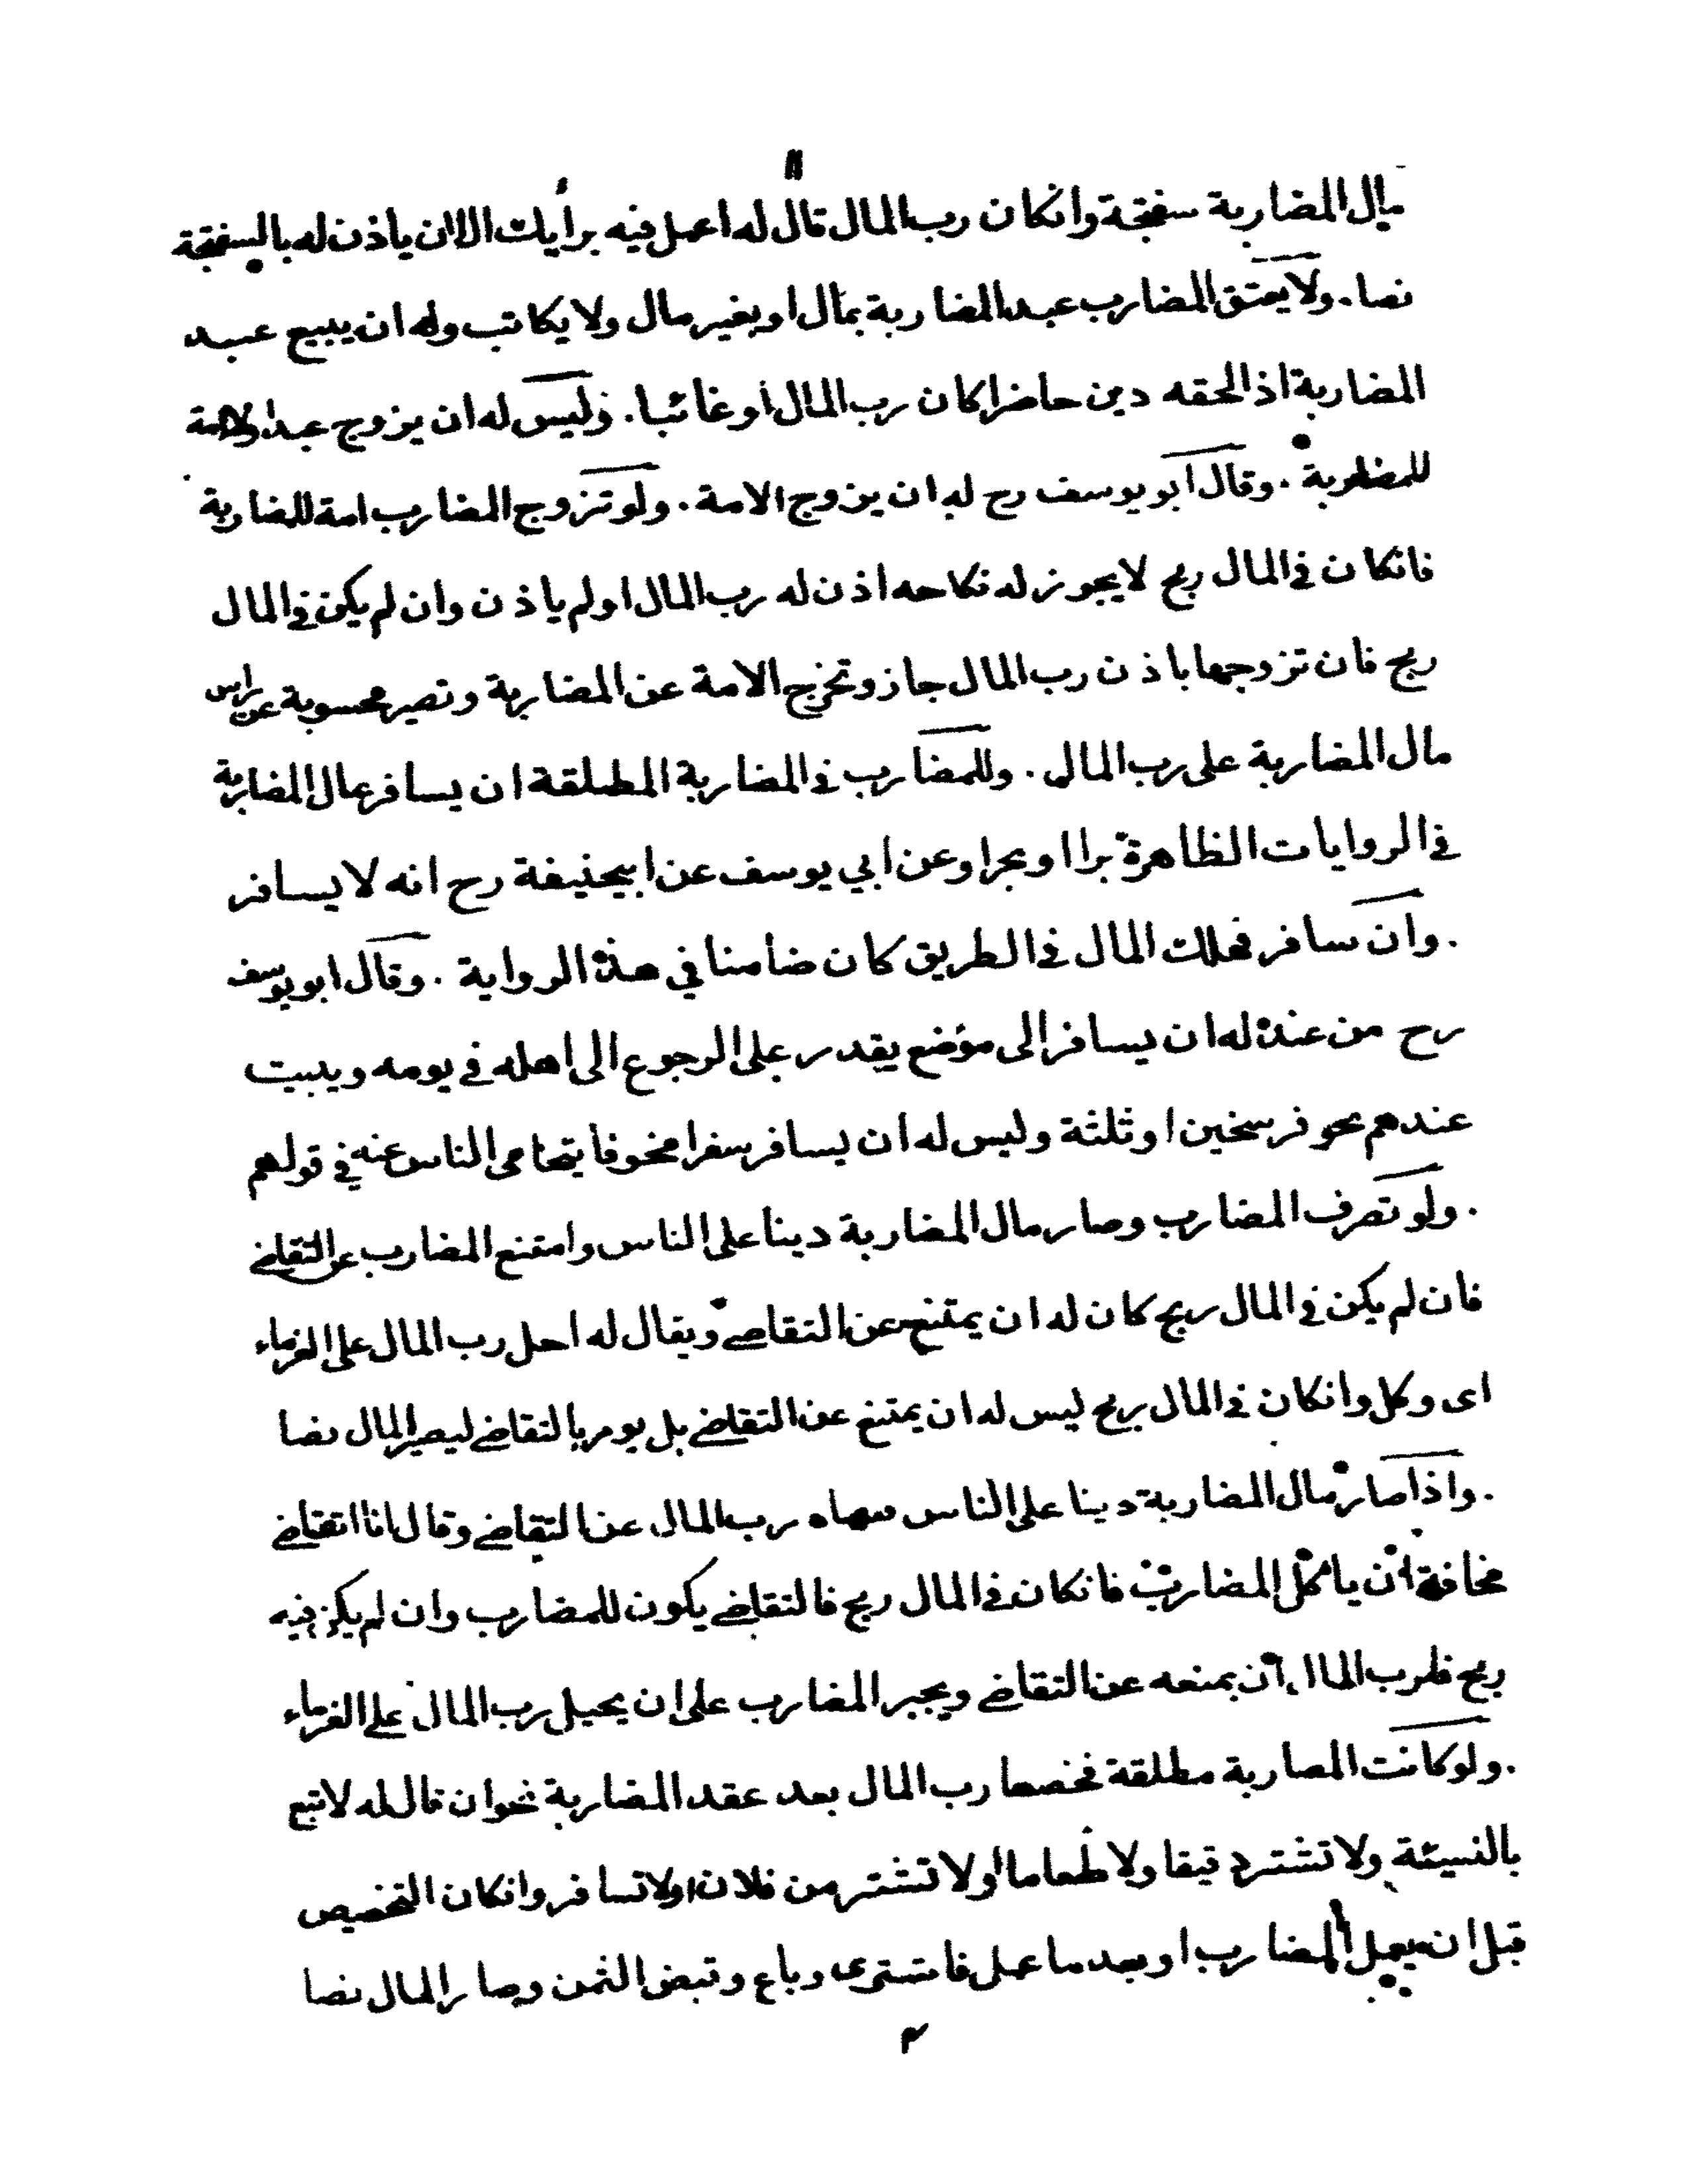 مال المضاربة سفتجة وانكان رب المال قال له اعمل فيه برأيك الا ان ياذن له بالسفتجة
نصا. ولا يعتق المضارب عبد المضاربة بمال او بغير مال ولا يكاتب وله ان يبيع عبد
المضاربة اذا لحقه دين حاضرا كان رب المال أو غائبا. وليس له ان يزوج عبدا ولا امة
للمضاربة. وقال ابو يوسف رح له ان يزوج الامة. ولو تزوج المضارب امة للمضاربة
فانكان في المال ربح لا يجوز له نكاحه اذن له رب المال او لم ياذن وان لم يكن في المال
ربح فان تزوجها باذن رب المال جاز وتخرج الامة عن المضاربة وتصير محسوبة عن راس
مال المضاربة على رب المال. وللمضارب في المضاربة المطلقة ان يسافر بمال المضاربة
في الروايات الظاهرة برا او بحرا وعن ابي يوسف عن ابيحنيفة رح انه لا يسافر
. وان سافر فهلك المال في الطريق كان ضامنا في هذه الرواية. وقال ابو يوسف
رح من عنده له ان يسافر الى موضع يقدر على الرجوع الى اهله في يومه ويبيت
عندهم نحو فرسخين او ثلثة وليس له أن يسافر سفرا مخوفا يتحامى الناس عنه في قولهم
. ولو تصرف المضارب وصار مال المضاربة دينا على الناس وامتنع المضارب عن التقاضي
فان لم يكن في المال ربح كان له ان يمتنع عن التقاضي ويقال له احل رب المال على الغرماء
اى وكل وانكان في المال ربح ليس له ان يمتنع عن التقاضي بل يومر بالتقاضي ليصير المال نضا
. واذا صار مال المضاربة دينا على الناس فنهاه رب المال عن التقاضي وقال انا اتقاضي
مخافة ان ياكل المضارب فانكان في المال ربح فالتقاضي يكون للمضارب وان لم يكن فيه
ربح فلرب المال ان يمنعه عن التقاضي ويجبر المضارب على ان يحيل رب المال على الغرماء
. ولو كانت المضاربة مطلقة فخصها رب المال بعد عقد المضاربة نحو ان قال له لا تبع
بالنسيئة ولا تشتر دقيقا ولا طعاما او لا تشتر من فلان او لا تسافر وانكان التخصيص
قبل ان يعمل المضارب او بعد ما عمل فاشترى وباع وقبض الثمن وصار المال نضا